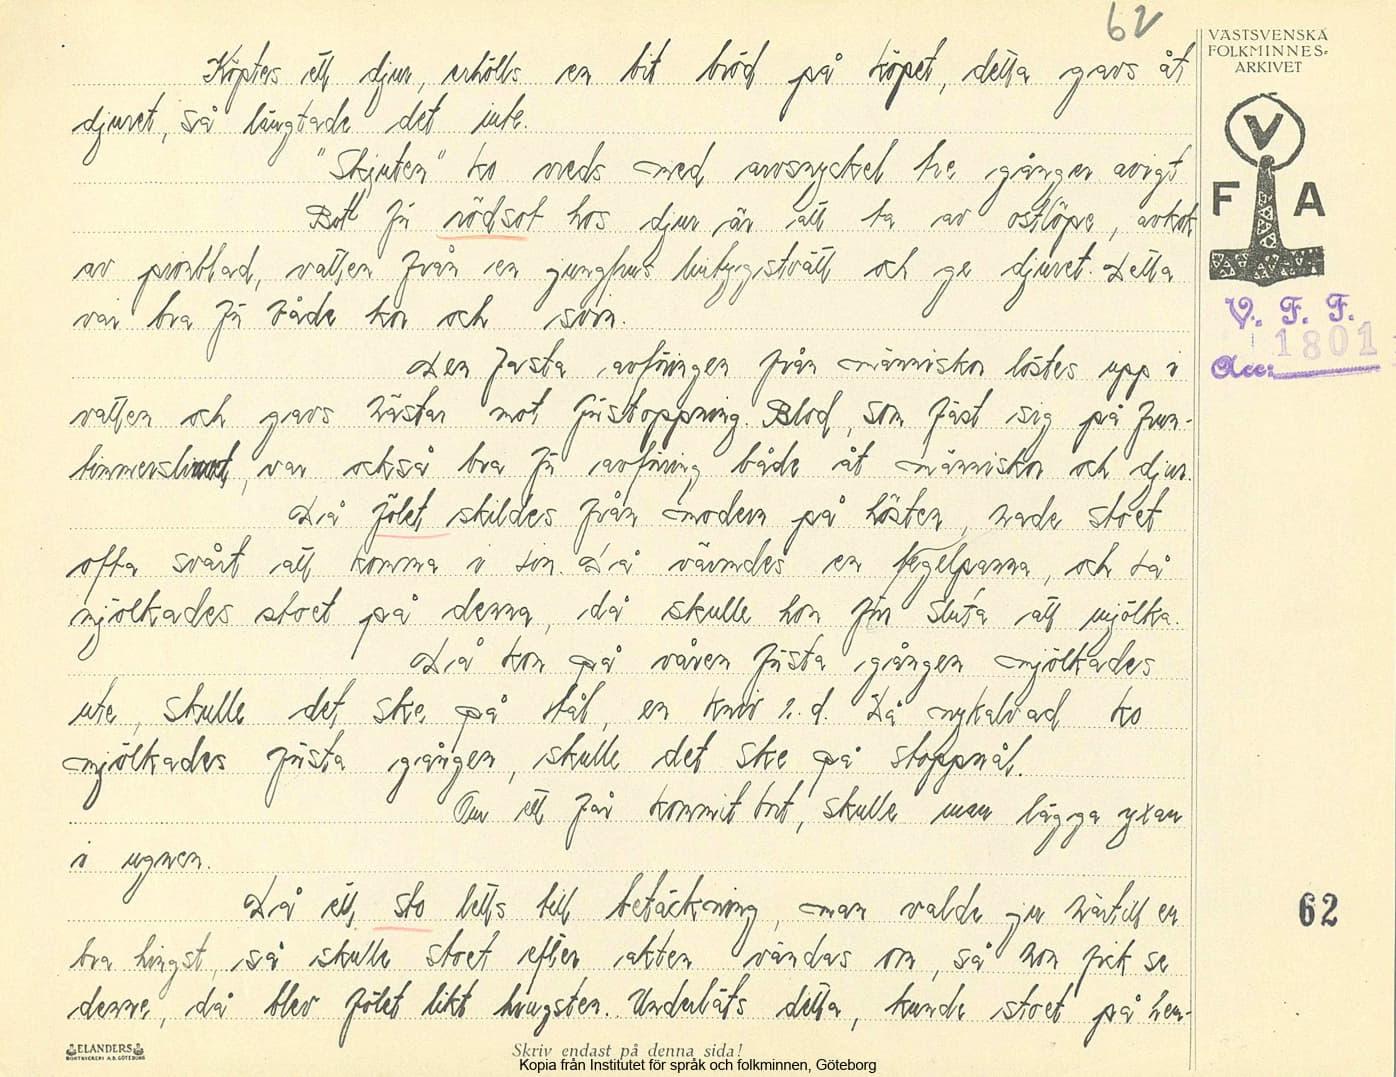 62
VÄSTSVENSKA
FOLKMINNES-
ARKIVET
V
F A
V. F. F.
1801
Acc:
Köptes ett djur, erhölls en bit bröd på köpet, detta gavs åt
djuret, så längtade det inte.
"Skjuten" ko vreds med arvsnyckel tre gånger avigt
Bot för rödsot hos djur är att ta av ostlöpe, avkok
av pionblad, vatten från en jungfrus byktvätt och ge djuret. Detta
var bra för både kor och svin.
Den första avföringen från människor löstes upp i
vatten och gavs hästar mot förstoppning. Blod, som fäst sig på frun-
timmerslinnet, var också bra för avföring både åt människor och djur.
Då fölet skildes från modern på hösten, hade stoet
ofta svårt att komma i sin. Då värmdes en tegelpanna, och så
mjölkades stoet på denna, då skulle hon förr sluta att mjölka.
Då kon på våren första gången mjölkades
ute, skulle det ske på stål, en kniv e. d. Då nykalvad ko
mjölkades första gången, skulle det ske på stoppnål.
Om ett får kommit bort, skulle man lägga yxan
i ugnen.
Då ett sto letts till betäckning, man valde ju härtill en
bra hingst, så skulle stoet efter akten vändas om, så hon fick se
denne, då blev fölet likt hingsten. Underläts detta, kunde stoet på hem-
62
ELANDERS
BOKTRYCKERI A.B. GÖTEBORG
Skriv endast på denna sida!
Kopia från Institutet för språk och folkminnen, Göteborg